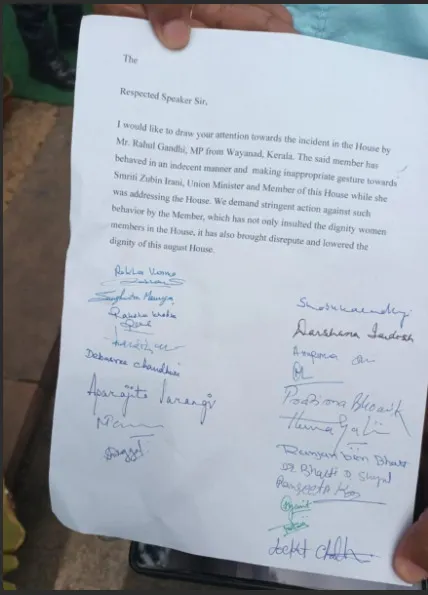 The
Respected Speaker Sir,
I would like to draw your attention towards the incident in the House by
Mr. Rahul Gandhi, MP from Wayanad, Kerala. The said member has
behaved in an indecent manner and making inappropriate gesture towards
Smriti Zubin Irani, Union Minister and Member of this House while she
was addressing the House. We demand stringent action against such
behavior by the Member, which has not only insulted the dignity women
members in the House, it has also brought disrepute and lowered the
dignity of this august House.
Rekha Verma
Sanghmitra Maurya
Debasree Chaudhuri
Aparajita Sarangi
Darshana Jardosh
Pratima Bhoumik
Hema Malini
Ranjanben Bhatt
Dr Bharti D. Shiyal
Locket